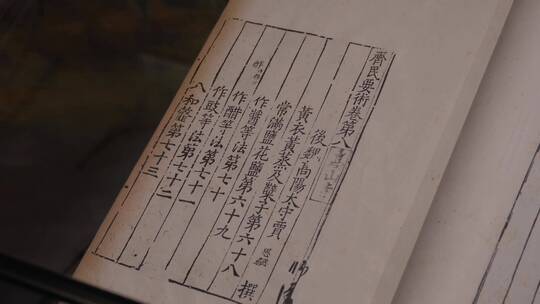 齊民要術卷第八
後魏高陽太守賈思勰撰
黃衣黃蒸及糵子第六十八
常滿鹽花鹽第六十九
作醬等法第七十
作醋等法第七十一
作豉等法第七十二
八和虀第七十三